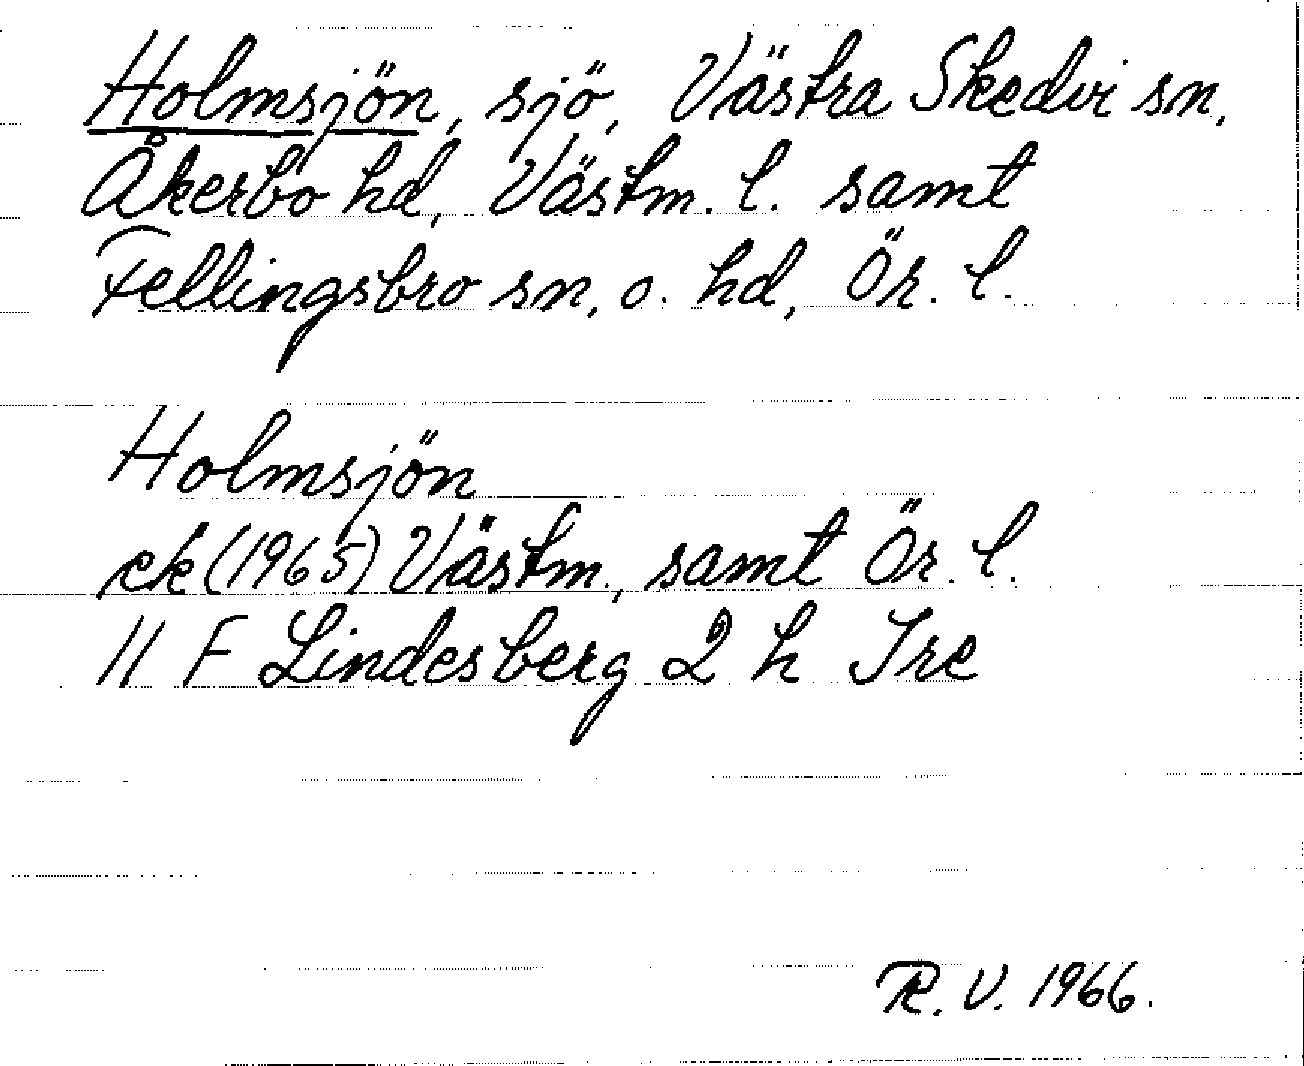 Holmsjön, sjö, Västra Skedvi sn,
Åkerbo hd, Västm. l. samt
Fellingsbro sn, o. hd, Ör. l.
Holmsjön
ek (1965) Västm., samt Ör. l.
11 F Lindesberg 2 h Tre
R. V. 1966.